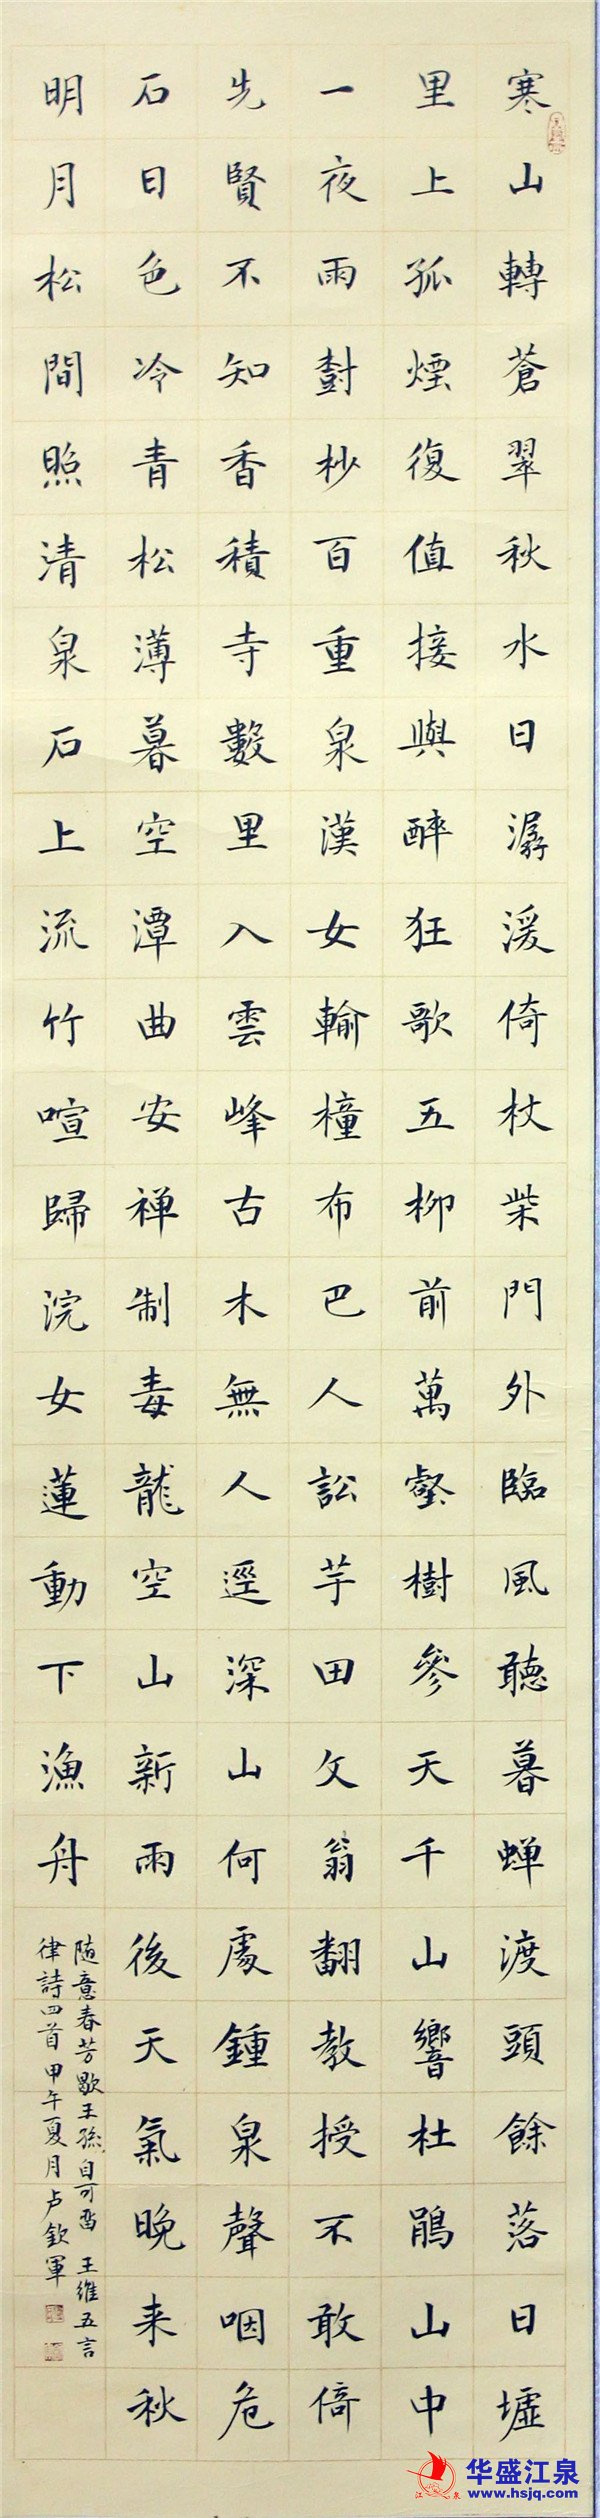 寒山轉蒼翠秋水日潺湲倚杖柴門外臨風聽暮蝉渡頭餘落日墟
里上孤煙復值接與醉狂歌五柳前萬壑樹參天千山響杜鵑山中
一夜雨尌杪百重泉漢女輸橦布巴人訟芋田文翁翻教授不敢倚
先賢不知香積寺數里入雲峰古木無人逕深山何處鍾泉聲咽危
石日色冷青松薄暮空潭曲安禅制毒龍空山新雨後天氣晚来秋
明月松間照清泉石上流竹喧歸浣女蓮動下漁舟
随意春芳歇王孫自可留 王維五言
律詩四首 甲午夏月卢欽軍
江泉
华盛江泉
www.hsjq.com